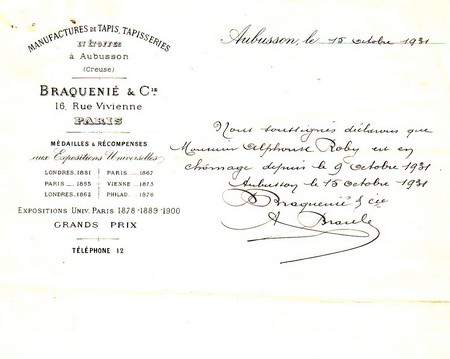 MANUFACTURES DE TAPIS, TAPISSERIES
ET ÉTOFFES
à Aubusson
(Creuse)
BRAQUENIÉ & Cie
16, Rue Vivienne
PARIS
MÉDAILLES & RÉCOMPENSES
aux Expositions Universelles
LONDRES.1851 PARIS ..... 1867
PARIS ..... 1855 VIENNE ... 1873
LONDRES.1862 PHILAD. ... 1876
EXPOSITIONS UNIV. PARIS 1878-1889-1900
GRANDS PRIX
TÉLÉPHONE 12
Aubusson, le 15 octobre 1931
Nous soussignés déclarons que
Monsieur Alphonse Roby est en
chômage depuis le 9 octobre 1931.
Aubusson le 15 octobre 1931
Braquenié & cie
A